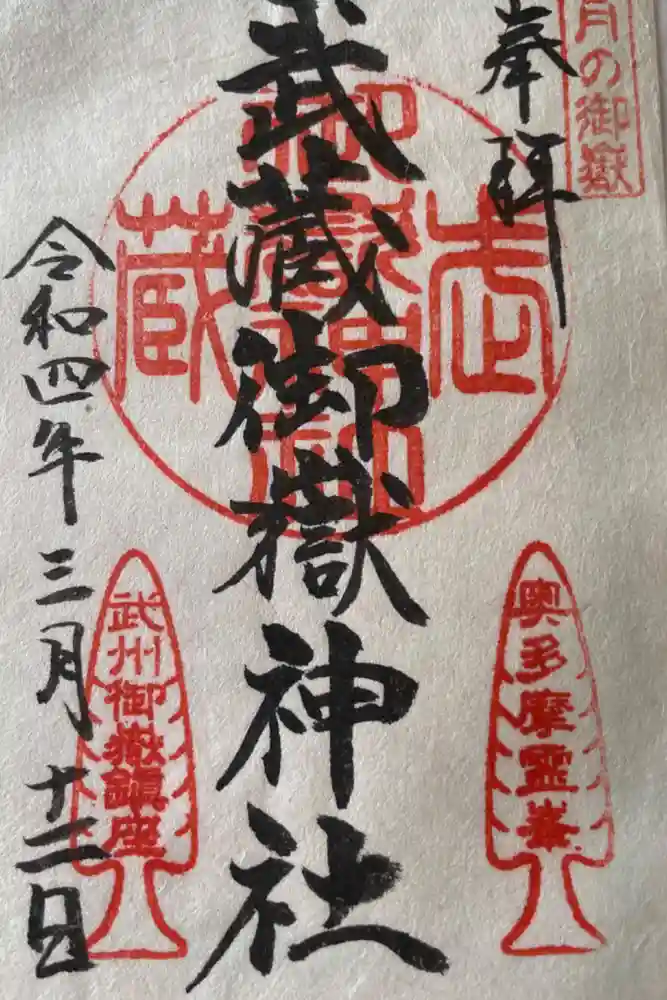 月の御嶽
奉拝
武蔵御嶽神社
武
蔵
御嶽神社
奥多摩霊峯
武州御嶽鎮座
令和四年三月十二日